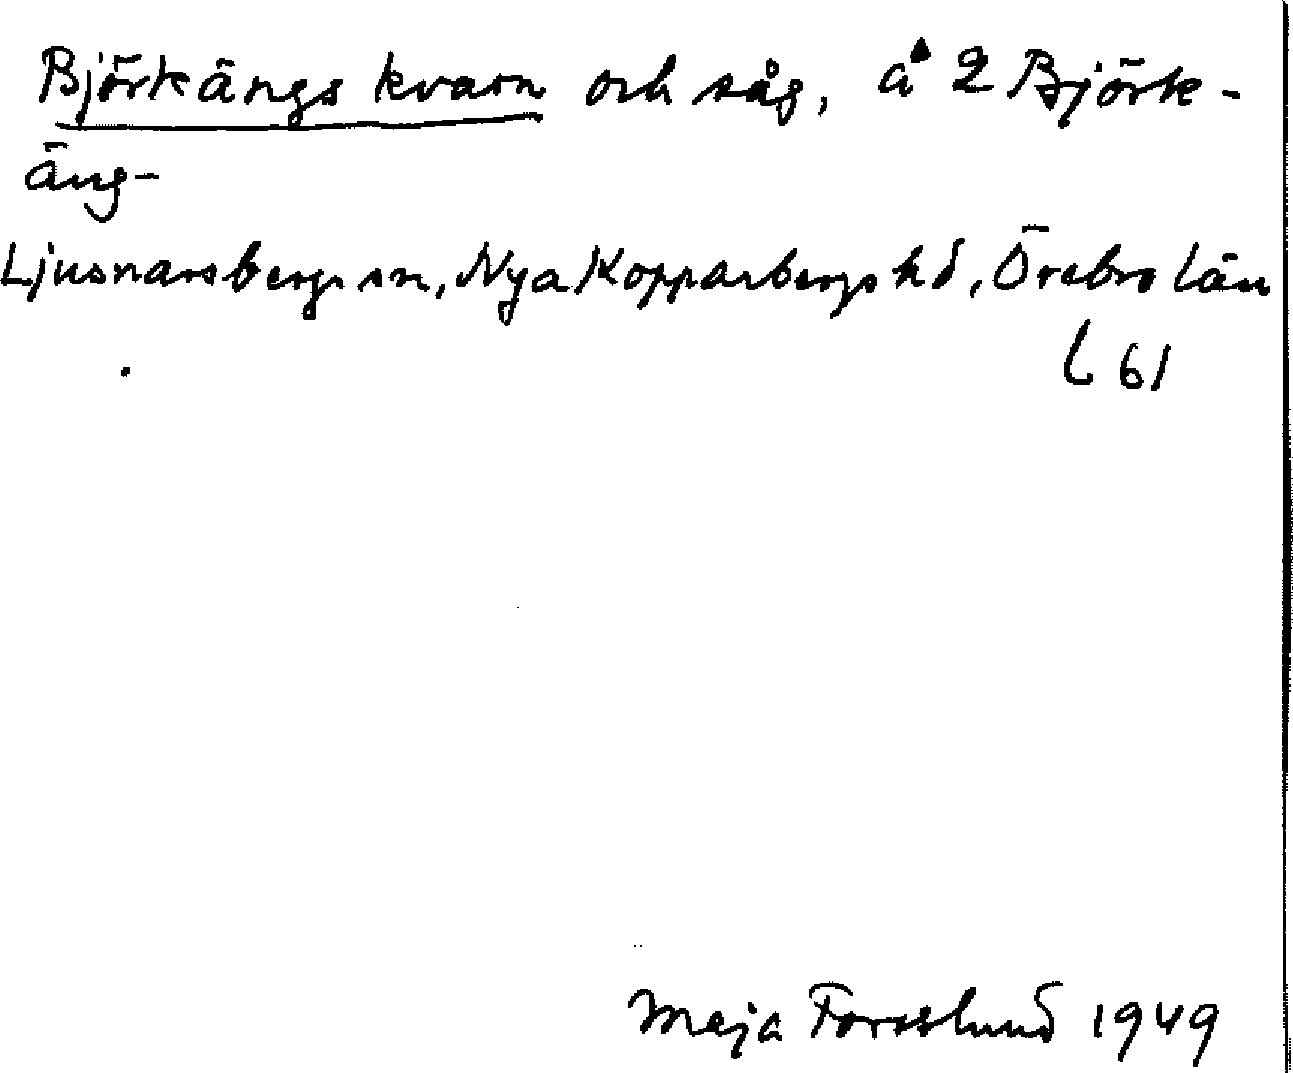 Björkängs kvarn och såg, å 2 Björk-
äng-
Ljusnarsbergs sn, Nya Kopparbergs hd, Örebro län
L 61
Maja Forsslund 1949